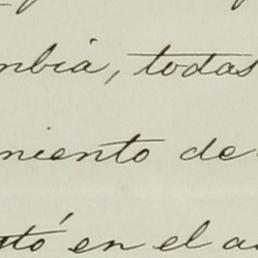 mbia, todas
miento de
tó en el a